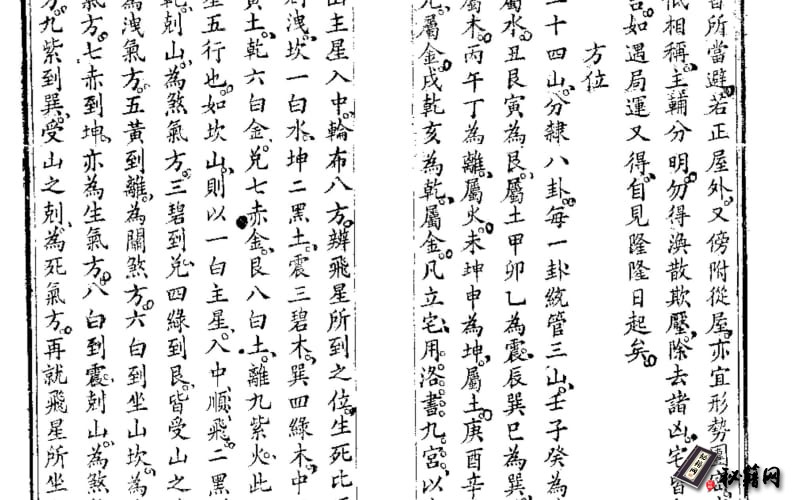 所當避若正屋外又傍附從屋亦宜形勢團
低相稱主輔分明勿得渙散欺壓除去諸凶宅皆
吉如遇局運又得自見隆隆日起矣
方位
二十四山分隸八卦每一卦統管三山壬子癸為
屬水丑艮寅為艮屬土甲卯乙為震辰巽巳為
屬木丙午丁為離屬火未坤申為坤屬土庚酉辛
兌屬金戌乾亥為乾屬金凡立宅用洛書九宮以
山主星入中輪布八方辨飛星所到之位生死比
洩坎一白水坤二黑土震三碧木巽四綠木中
黃土乾六白金兌七赤金艮八白土離九紫火此
星五行也如坎山則以一白主星入中順飛二黑
乾剋山為煞氣方三碧到兌四綠到艮皆受山之
為洩氣方五黃到離為關煞方六白到坐山坎為
氣方七赤到坤亦為生氣方八白到震剋山為煞
方九紫到巽受山之剋為死氣方再就飛星所坐
秘籍网